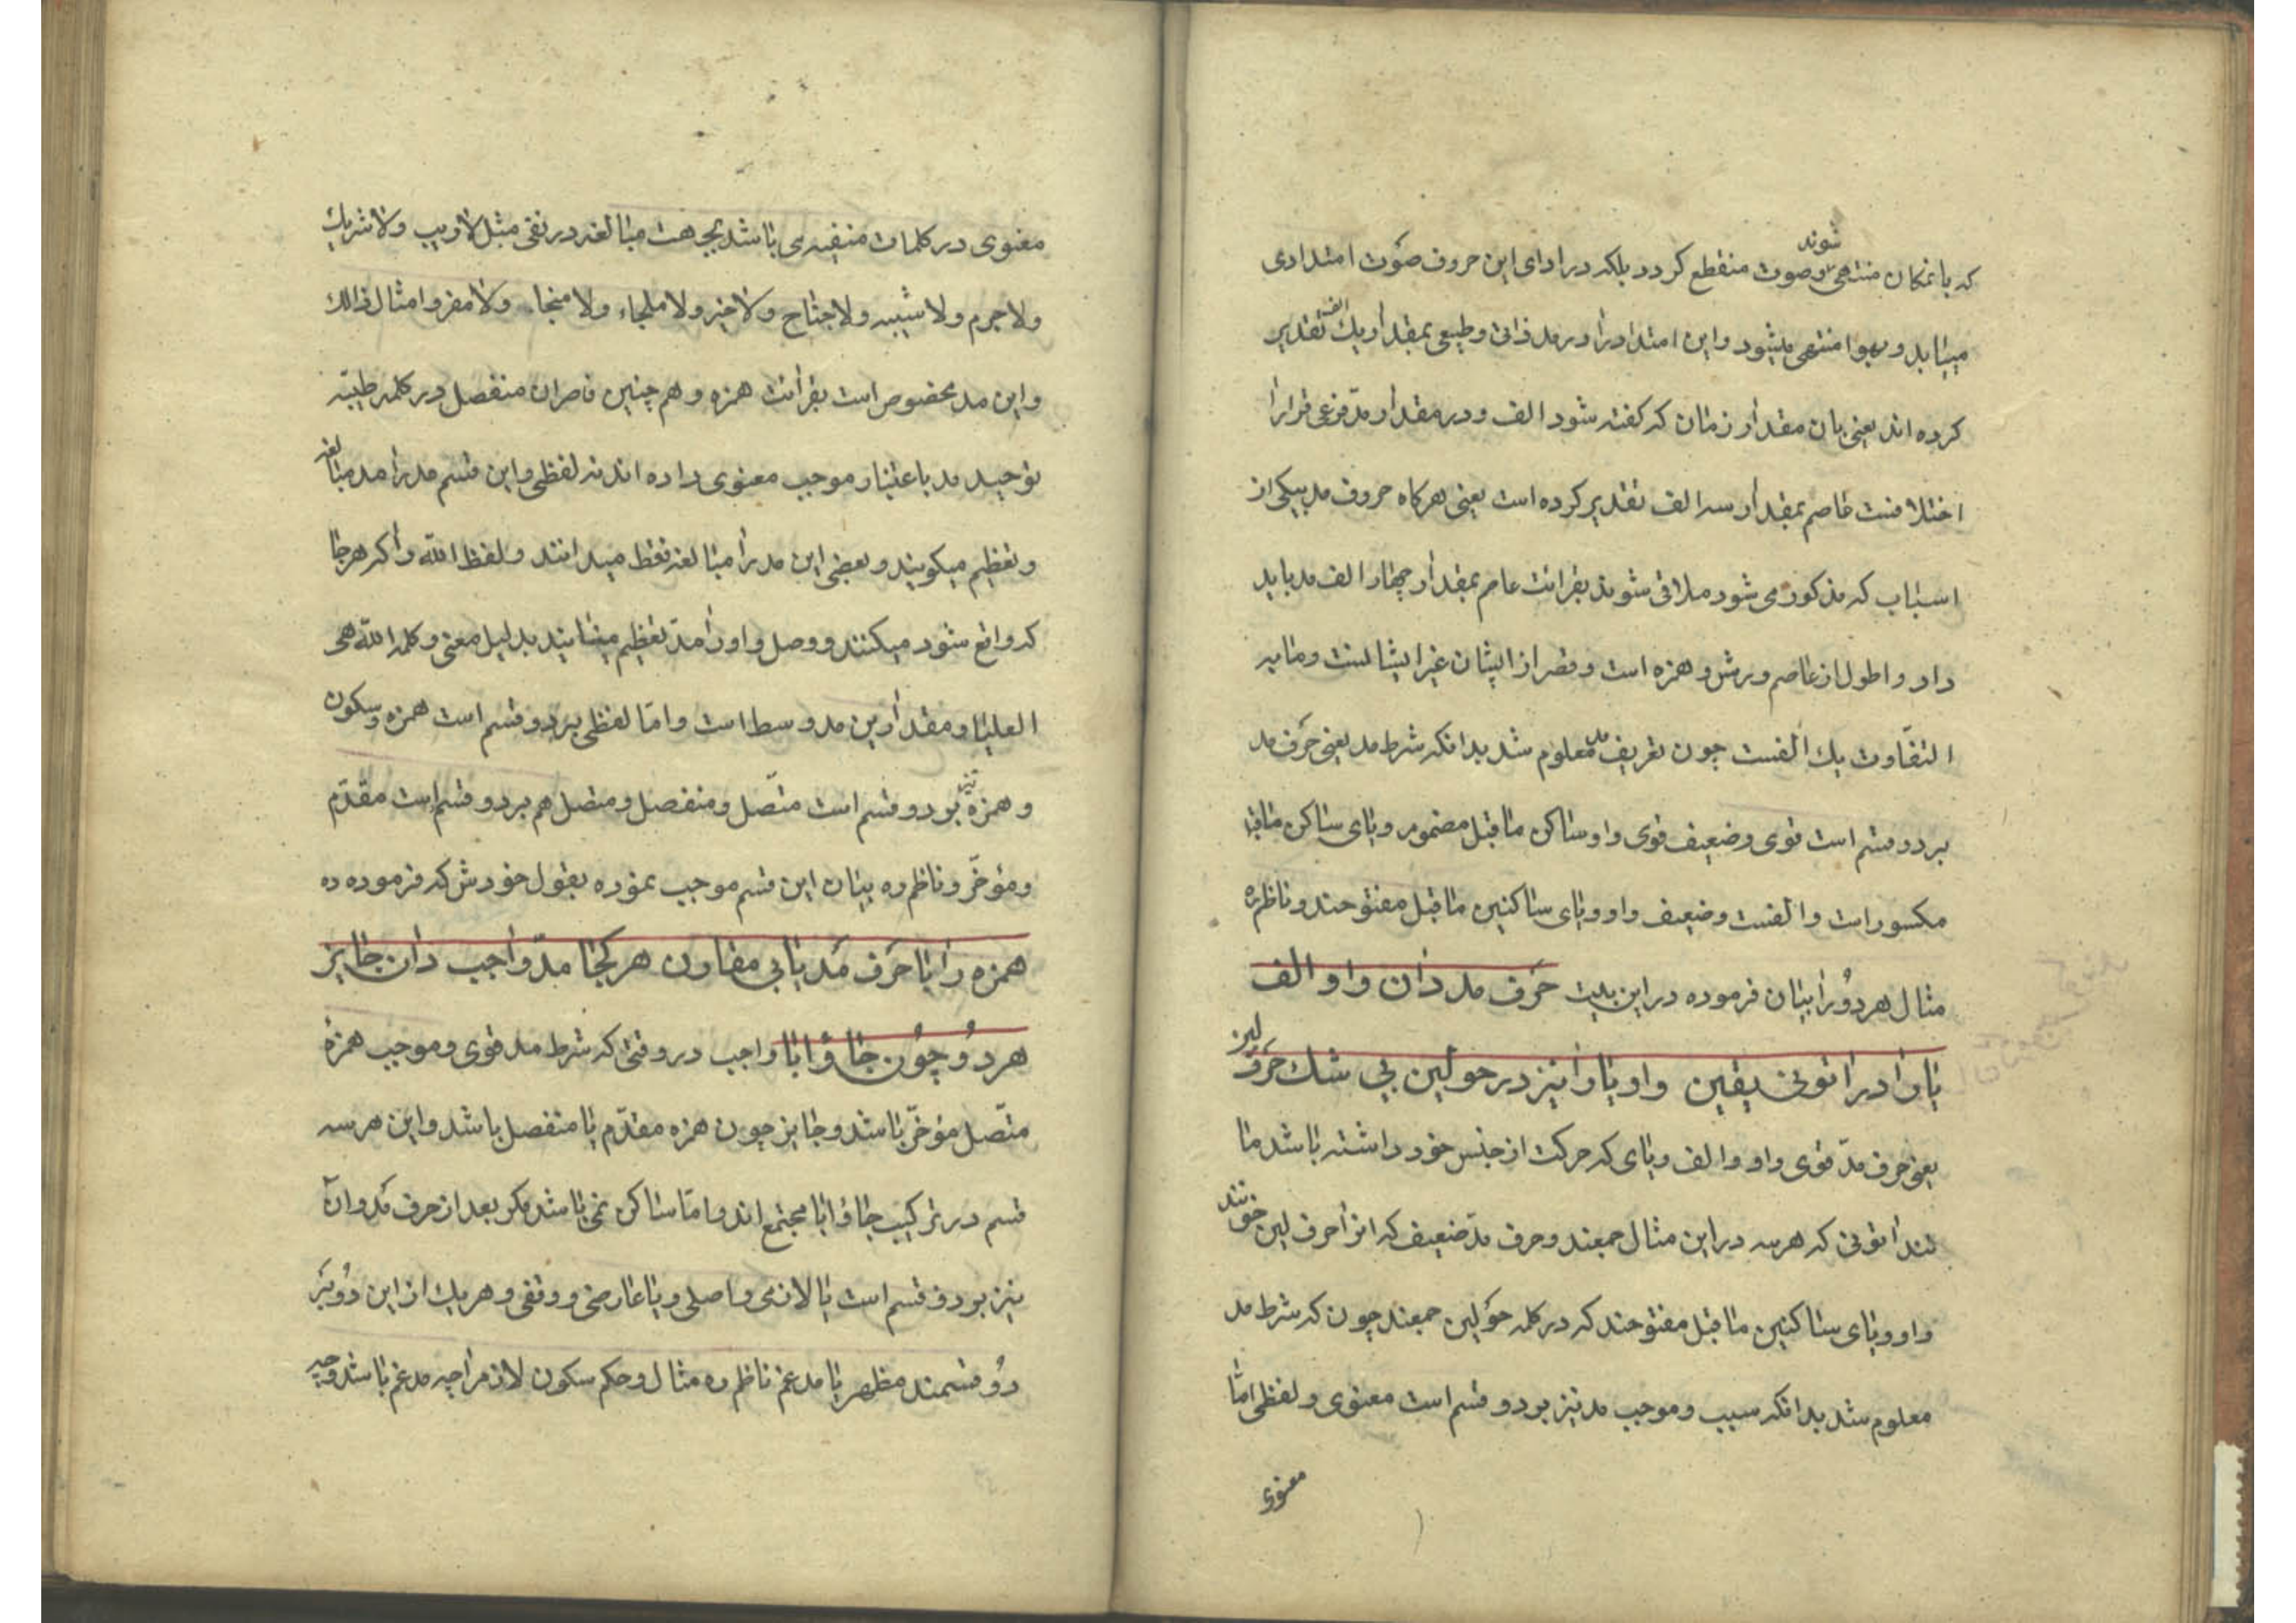 که بانمکان منتهی شوند وصوت منقطع کردد بلکه در ادای این حروف صوت امتدادی
مییابد و بهوا منتهی میشود واین امتداد را در مد ذاتی وطبیعی بمقدار یك الف تقدیر
کرده اند یعنی بان مقدار زمان که کفته شود الف ودر مقدار مدّ فرعی قرا را
اختلافست عاصم بمقدار سه الف تقدیر کرده است یعنی هرکاه حروف مد بیکی از
اسباب که مذکور می شود ملاقی شوند بقرائت عاصم بمقدار چهار الف مد باید
داد واطول از عاصم ورش وحمزه است وقصر از ایشان غیر ایشانست ومابه
التفاوت یك الفست چون تعریف مد معلوم شد بدانکه شرط مد یعنی حرف مد
بر دو قسم است قوی وضعیف قوی واو ساکن ماقبل مضموم ویای ساکن ماقبل
مکسور است والفست وضعیف واو ویای ساکنین ماقبل مفتوحند وناظم ره
مثال هر دو را بیان فرموده در این بیت حرف مد دان واو الف
یا را در اتونی یقین واو یا را نیز در حولین بی شك حرف لین
یعنی حرف مدّ قوی واو والف ویای که حرکت از جنس خود داشته باشد ما
نند اتونی که هرسه در این مثال جمعند وحرف مدّ ضعیف که انرا حرف لین خوانند
واو ویای ساکنین ماقبل مفتوحند که در کلمه حولین جمعند چون که شرط مد
معلوم شد بدانکه سبب وموجب مد نیز بر دو قسم است معنوی ولفظی امّا
معنوی
معنوی در کلمات منفیه می باشد بجهت مبالغه در نفی مثل لاریب ولاشریك
ولاجرم ولاشیبه ولاجناح ولاخیر ولاملجاء ولامنجاء ولامفر وامثال ذالك
واین مد مخصوص است بقرائت حمزه وهم چنین قاصران منفصل در کلمه طیبّه
توحید مد باعتبار موجب معنوی داده اند نه لفظی واین قسم مد را مد مبالغه
وتعظیم میکویند وبعضی این مد را مبالغه فقط میدانند ولفظ الله را کر هرجا
که واقع شود میکنند ووصل واو را مدّ تعظیم مینمایند بدلیل معنی وکلمة الله هی
العلیا ومقدار این مد وسط است وامّا لفظی بر دو قسم است همزه وسکون
وهمزه نیز بر دو قسم است متّصل ومنفصل ومتصل هم بر دو قسم است مقدّم
ومؤخّر وناظم ره بیان این قسم موجب نموده بقول خودش که فرموده ره
همزه را با حرف مد یابی مقارن هر کجا مدّ واجب دان جایز
هر دو چون جاؤ ابا واجب در وقتی که شرط مد قوی وموجب همزهٔ
متّصل مؤخّر باشد وجایز چون همزه مقدّم یا منفصل باشد واین هر سه
قسم در ترکیب جاؤ ابا مجتمع اند وامّا ساکن نمی باشد مکر بعد از حرف مد وان
نیز بر دو قسم است یا لازمی واصلی ویا عارضی ووقفی وهریك از این دو نیز
دو قسمند مظهر یا مدغم ناظم ره مثال وحکم سکون لازم را چه مدغم باشد وچه